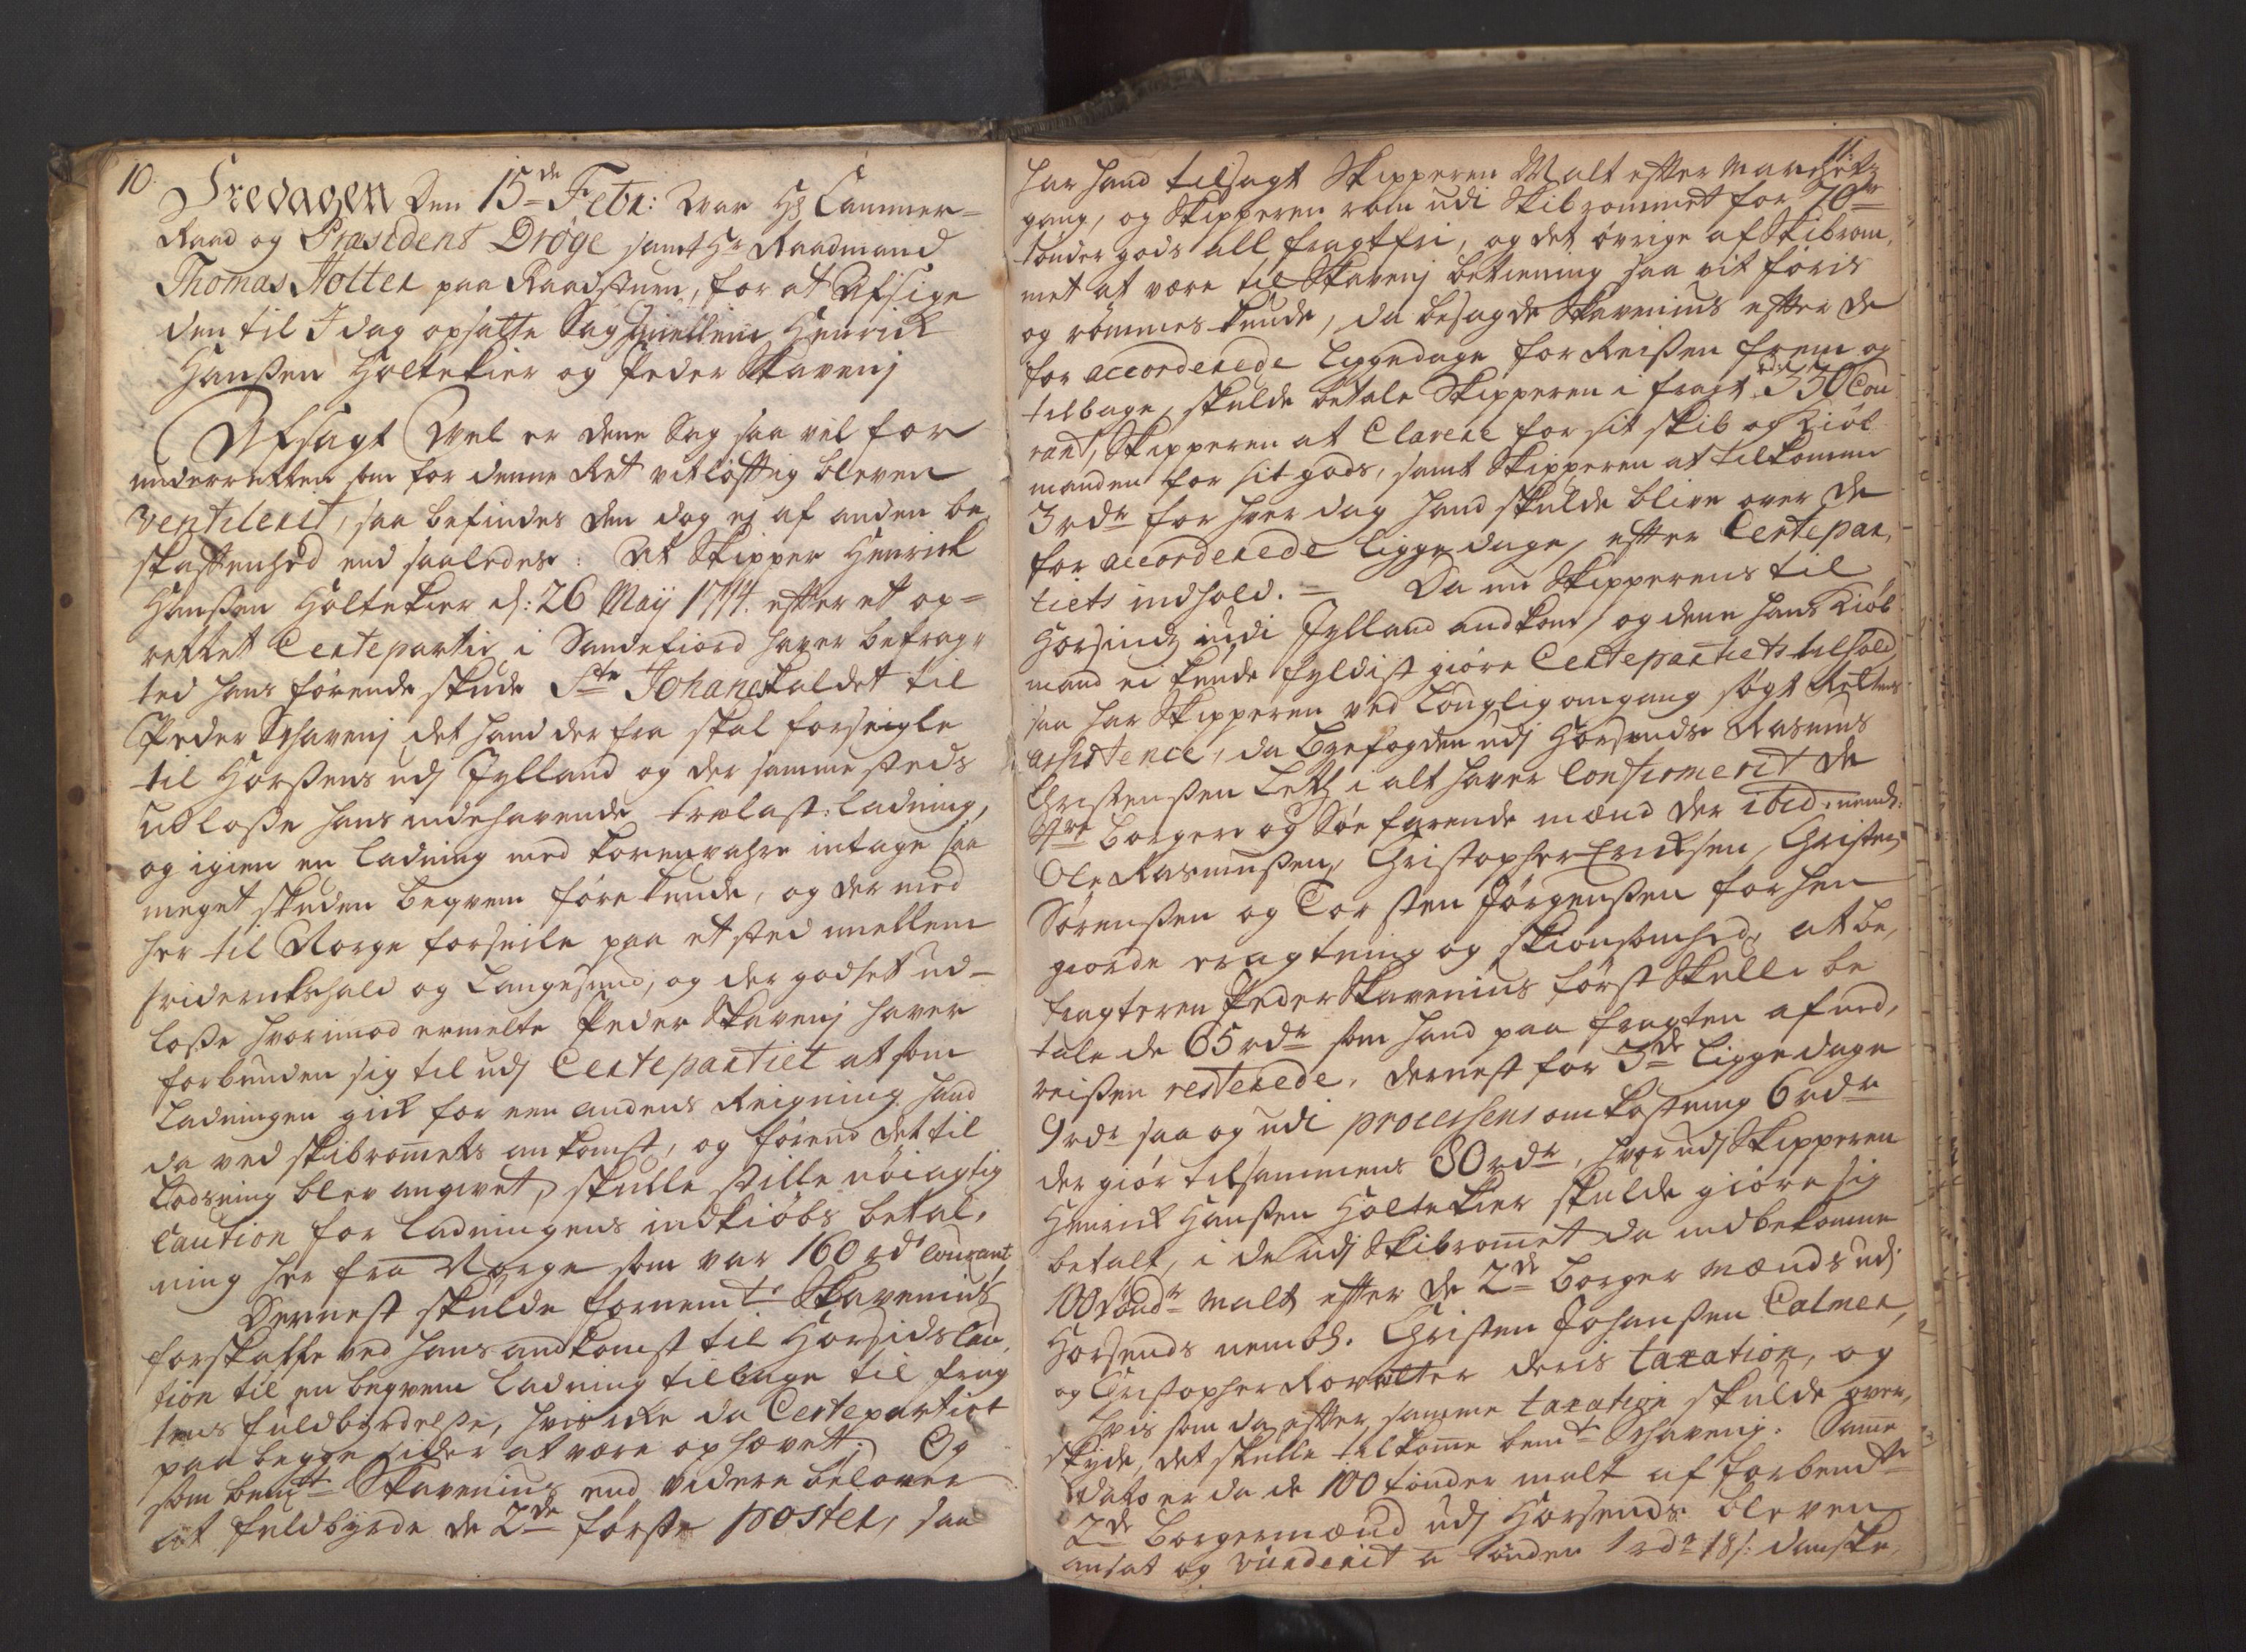 10.
Fredagen Den 15de Febr: War Hr Cammer=
Raad og Præsident Dröge samt Hr Raadmand
Thomas Holter paa Raadstuen, for at Afsige
den til I dag opsatte Sag Imellem Henrick
Hanßen Holtekier og Peder Skavenj
Afsagt Wel er dene Sag saa vel for
underretten som for denne Ret vitløfftig bleven
ventilerit, saa befindes den dog ej af anden be
skaffenhed end saaledes: At Skipper Henrick
Hanßen Holtekier d: 26 Maij 1714. efter et op=
rettet Certepartie i Sandefiord haver befrag„
ted hans førende skude Ste Johanes kaldet til
Peder Schavenj det hand der fra skal forseigle
til Horßens udj Jylland og der sammesteds
udloße hans indehavende trælast: ladning,
og igien en ladning med kornvahre intage saa
meget skuden beqvem føre kunde, og der med
her til Norge forseile paa et sted imellem
friderichshald og Langesund, og der godset ud=
loße hvorimod ermelte Peder Skavenj haver
forbunden sig til udj Certepartiet at som
Ladningen gick for een andens Reigning hand
da ved skibromets ankomst, og førend det til
Lodsning blev angivet, skulle stille nöiagtig
Caution for ladningens indkiøbs betal,
ning her fra Norge som var 160 rdr Courant
Dernest skulde fornemte Skavenius
forskaffe ved hans andkomst til Horsids Cau,
tion til en beqvem ladning tilbage til frag
tens fuldbyrdelße, hvis icke da Certepartiet
paa begge sider at være ophævett; Og
som bemte Skavenius end videre belover
at fuldbyrde de 2de første poster, saa
11.
har hand tilsagt Skipperen Malt efter Marchetz
gang, og Skipperen rom udi Skibrommet for 70ve
tønder gods all fragtfri, og det øvrige af Skibrom,
met at være til Skavenj betiening saa vit føris
og rommes kunde, da besagde Skavenius efter de
for accorderede liggedage for Reißen frem og
tilbage, skulde betale Skipperen i fragt rdr 350 Cou
rant, Skipperen at Clarere for sit skib og Kiøb
manden for sit gods, samt Skipperen at tilkomme
3 rdr for hver dag hand skulde blive over de
for accorderede ligge dage, efter Certepar,
tiets indhold. = Da nu Skipperens til
Horsindz udi Jylland andkom, og dene hans Kiøb
mand ei kunde fyldist giøre Certepartiets tilhold,
saa har Skipperen ved Louglig omgang søgt Rettens
assistence, da Byefogden udj Horsends Rasmus
Christenßen Letz i alt haver Confirmerit de
4re Borgere og Søe farende mænd der ibid: nemb:
Ole Rasmußen, Christopher Ericksen, Christen
Sørenßen og Torsten Jørgenßen forhen
giorde eragtning og skiønsomhed, at be,
fragteren Peder Skavenius først Skulle be
tale de 65 rdr som hand paa fragten af ud,
reißen resterede, dernest for 3de liggedage
9 rdr saa og udi processens omkostning 6 rdr
der giør tilsammens 80 rdr, hvor udj Skipperen
Henrick Hanßen Holtekier skulde giøre sig
betalt, i de udj Skibromet da indbekomne
100 tøndr malt efter de 2de borger mænds udj
Horsends nembl. Christen Johanßen Calmer,
og Christopher deris taxation, og
hvis som da efter samme taxation skulde over,
skyde, det skulle tilkome bemte Schavenj. Same
dato er da de 100 tønder malt af forbemdte
2de Borgermænd udj Horsends bleven
ansat og vurderit a tønden 1 rdr 18 s: danske,